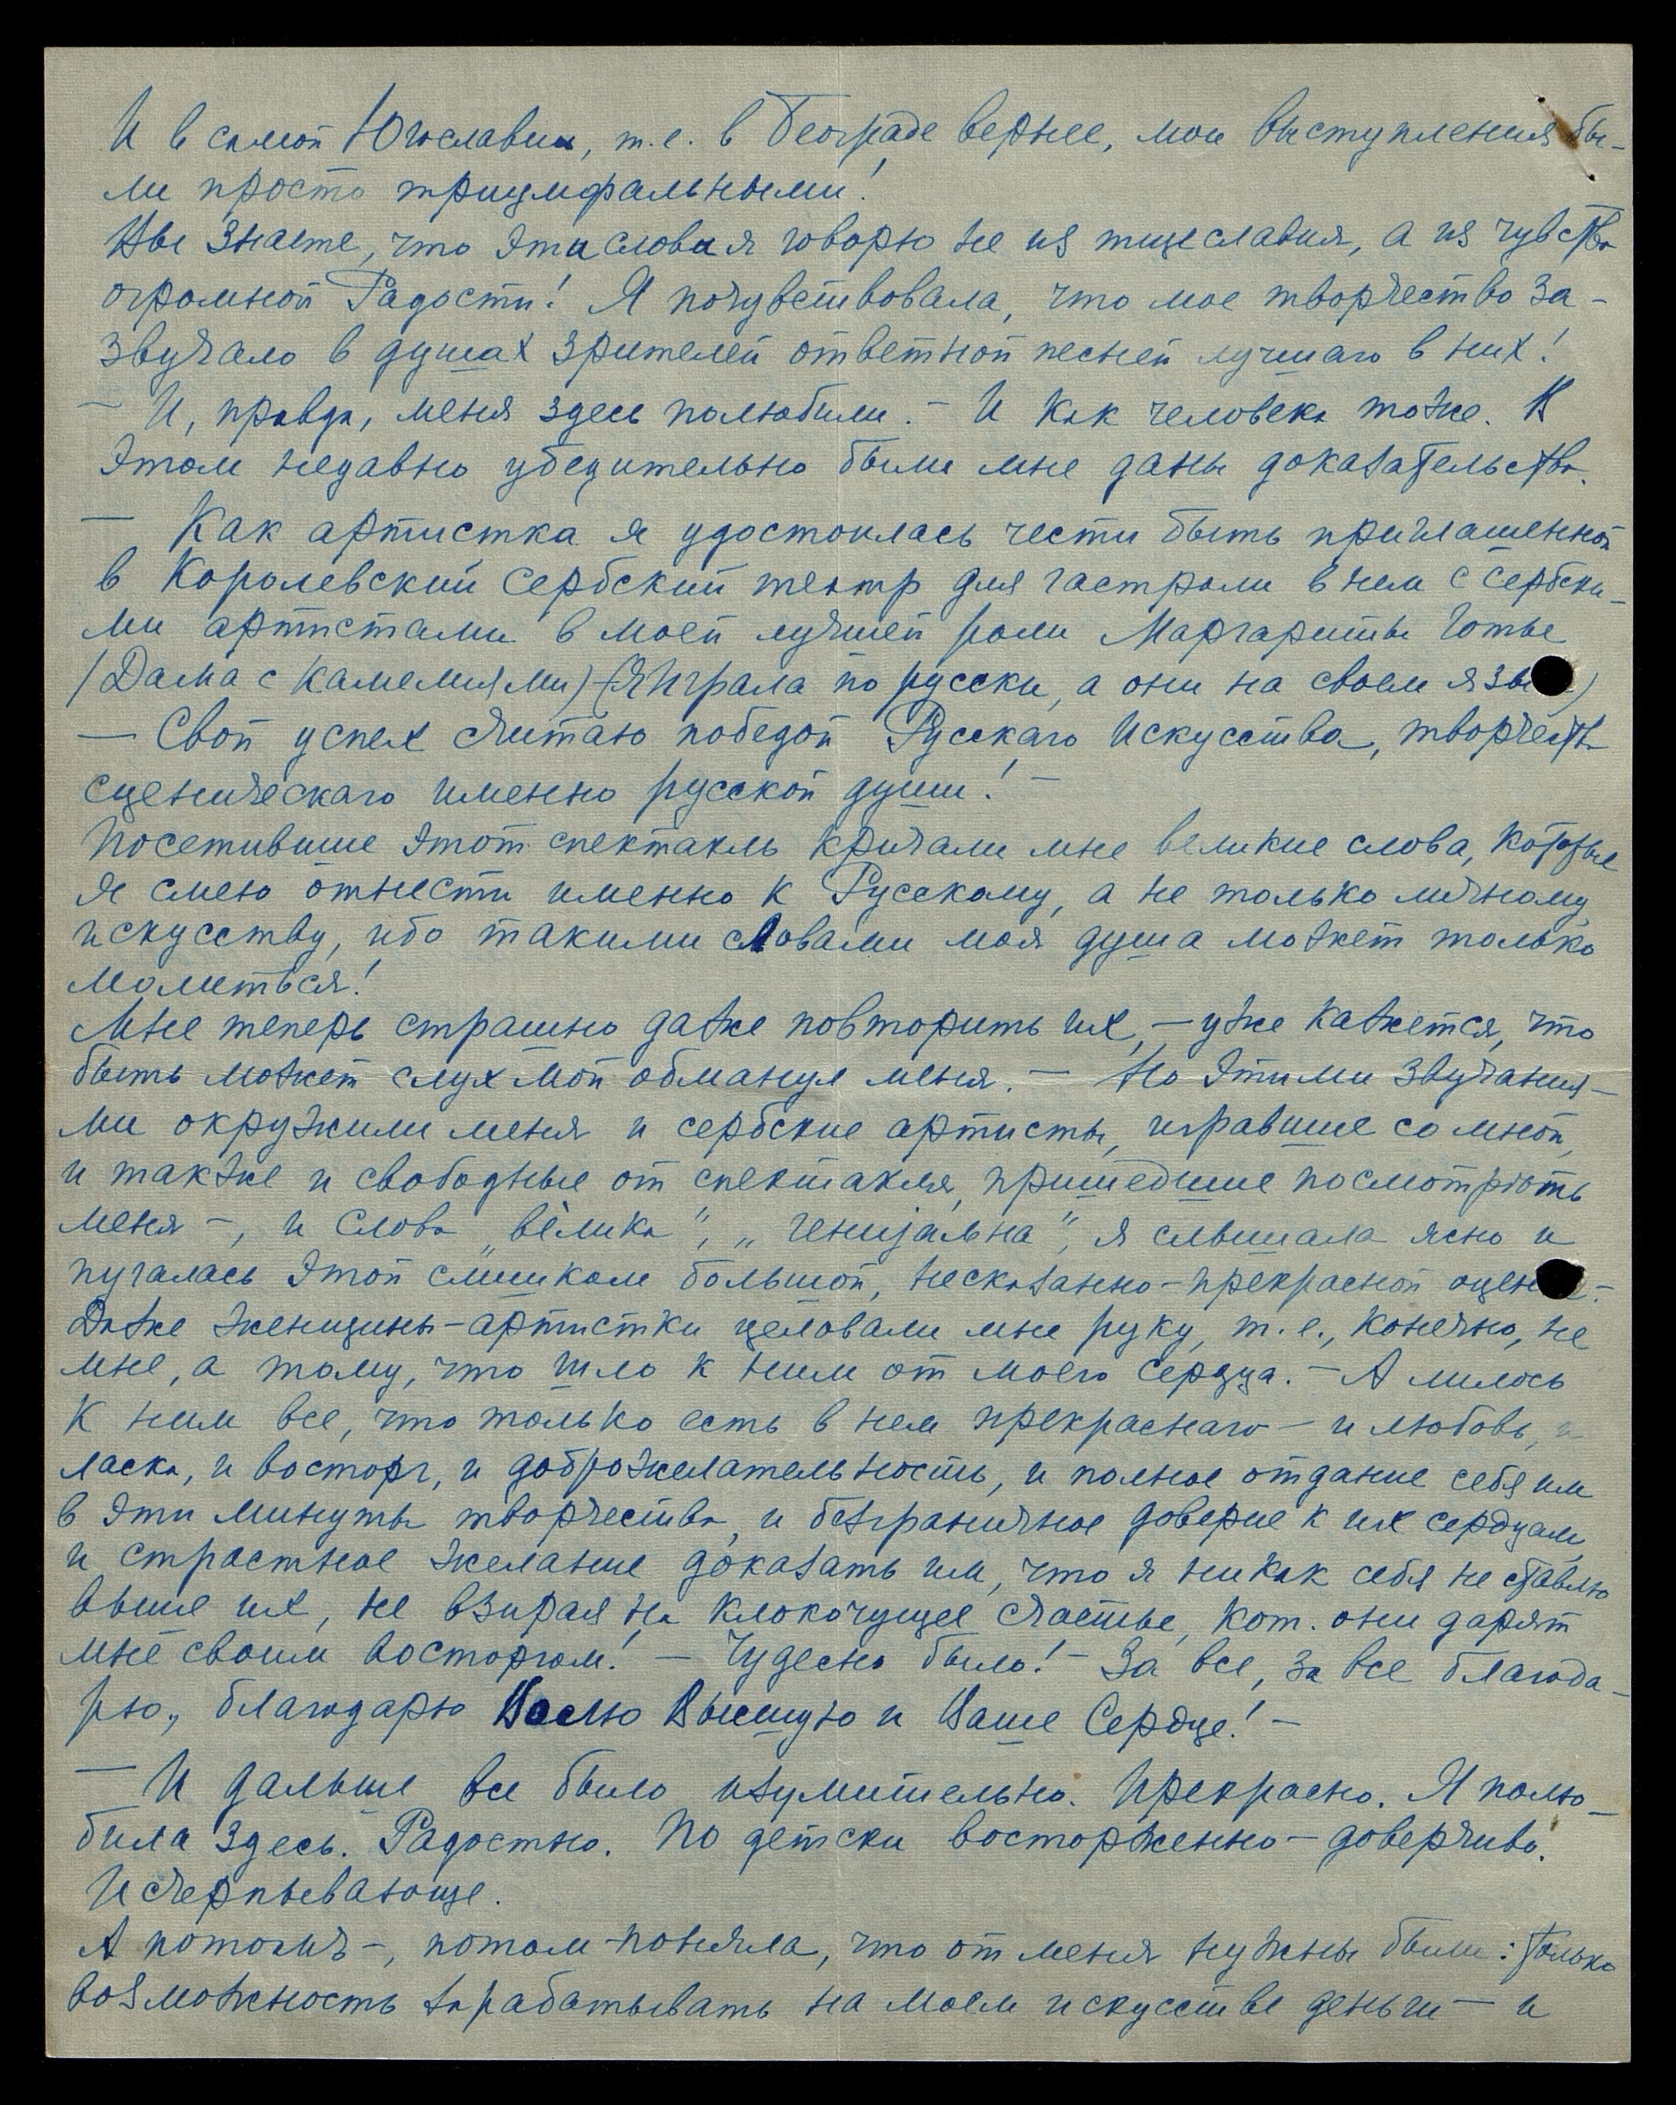 И в самой Югославии, т.е. в Београде вернее, мои выступления бы-
ли просто триумфальными!
Вы знаете, что эти слова я говорю не из тщеславия, а из чувства
огромной Радости! Я почувствовала, что мое творчество за-
звучало в душах зрителей ответной песней лучшаго в них!
— И, правда, меня здесь полюбили. — И как человека тоже. В
этом недавно убедительно были мне даны доказательства.
— Как артистка я удостоилась чести быть приглашенной
в Королевский Сербский театр для гастроли в нем с сербски-
ми артистами в моей лучшей роли Маргариты Готье
/Дама с камелиями/ (Я играла по русски, а они на своем языке)
— Свой успех считаю победой Русскаго Искусства, творчества
сценическаго именно русской души! —
Посетившие этот спектакль кричали мне великие слова, которые
я смею отнести именно к Русскому, а не только личному
искусству, ибо такими словами моя душа может только
молиться!
Мне теперь страшно даже повторить их, — уже кажется, что
быть может слух мой обманул меня. — Но этими звучания-
ми окружили меня и сербские артисты, игравшие со мной,
и также и свободные от спектакля, пришедшие посмотрѣть
меня —, и слова „велика", „генијална", я слышала ясно и
пугалась этой слишком большой, несказанно-прекрасной оценке.
Даже женщины-артистки целовали мне руку, т.е., конечно, не
мне, а тому, что шло к ним от моего сердца. — А лилось
к ним все, что только есть в нем прекраснаго — и любовь, и
ласка, и восторг, и доброжелательность, и полное отдание себя им
в эти минуты творчества, и безграничное доверие к их сердцам,
и страстное желание доказать им, что я никак себя не ставлю
выше их, не взирая на клокочущее счастье, кот. они дарят
мне своим восторгом! — Чудесно было! — За все, за все благода-
рю, благодарю Волю Высшую и Ваше Сердце! —
— И дальше все было изумительно. Прекрасно. Я полю-
била здесь. Радостно. По детски восторженно — доверчиво.
Исчерпывающе.
А потомъ —, потом — поняла, что от меня нужны были: только
возможность зарабатывать на моем искусстве деньги — и